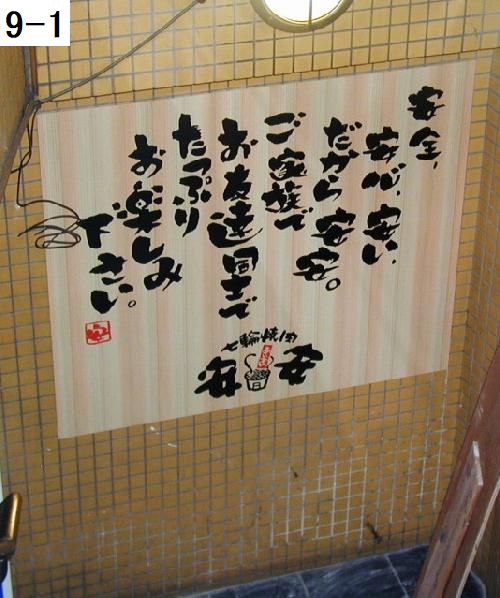 9-1
安全、
安心、安い、
だから安安。
ご家族で
お友達同士で
たっぷり
お楽しみ
下さい。
七輪焼肉
安安